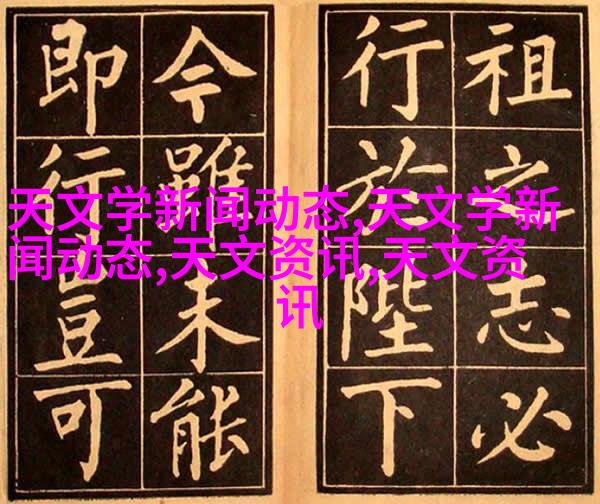 祖之志必
行於陛下
今雖未能
即行豈可
天文学新闻动态,天文学新
闻动态,天文资讯,天文资
讯